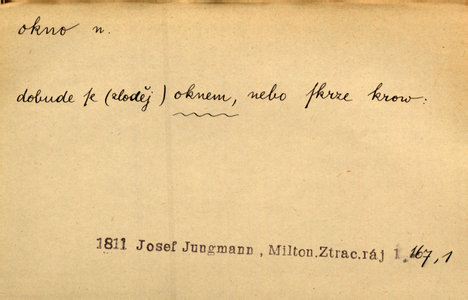 okno n.
dobude ſe (zloděj) oknem, nebo ſkrze krow:
1811 Josef Jungmann, Milton.Ztrac.ráj 1,167,1